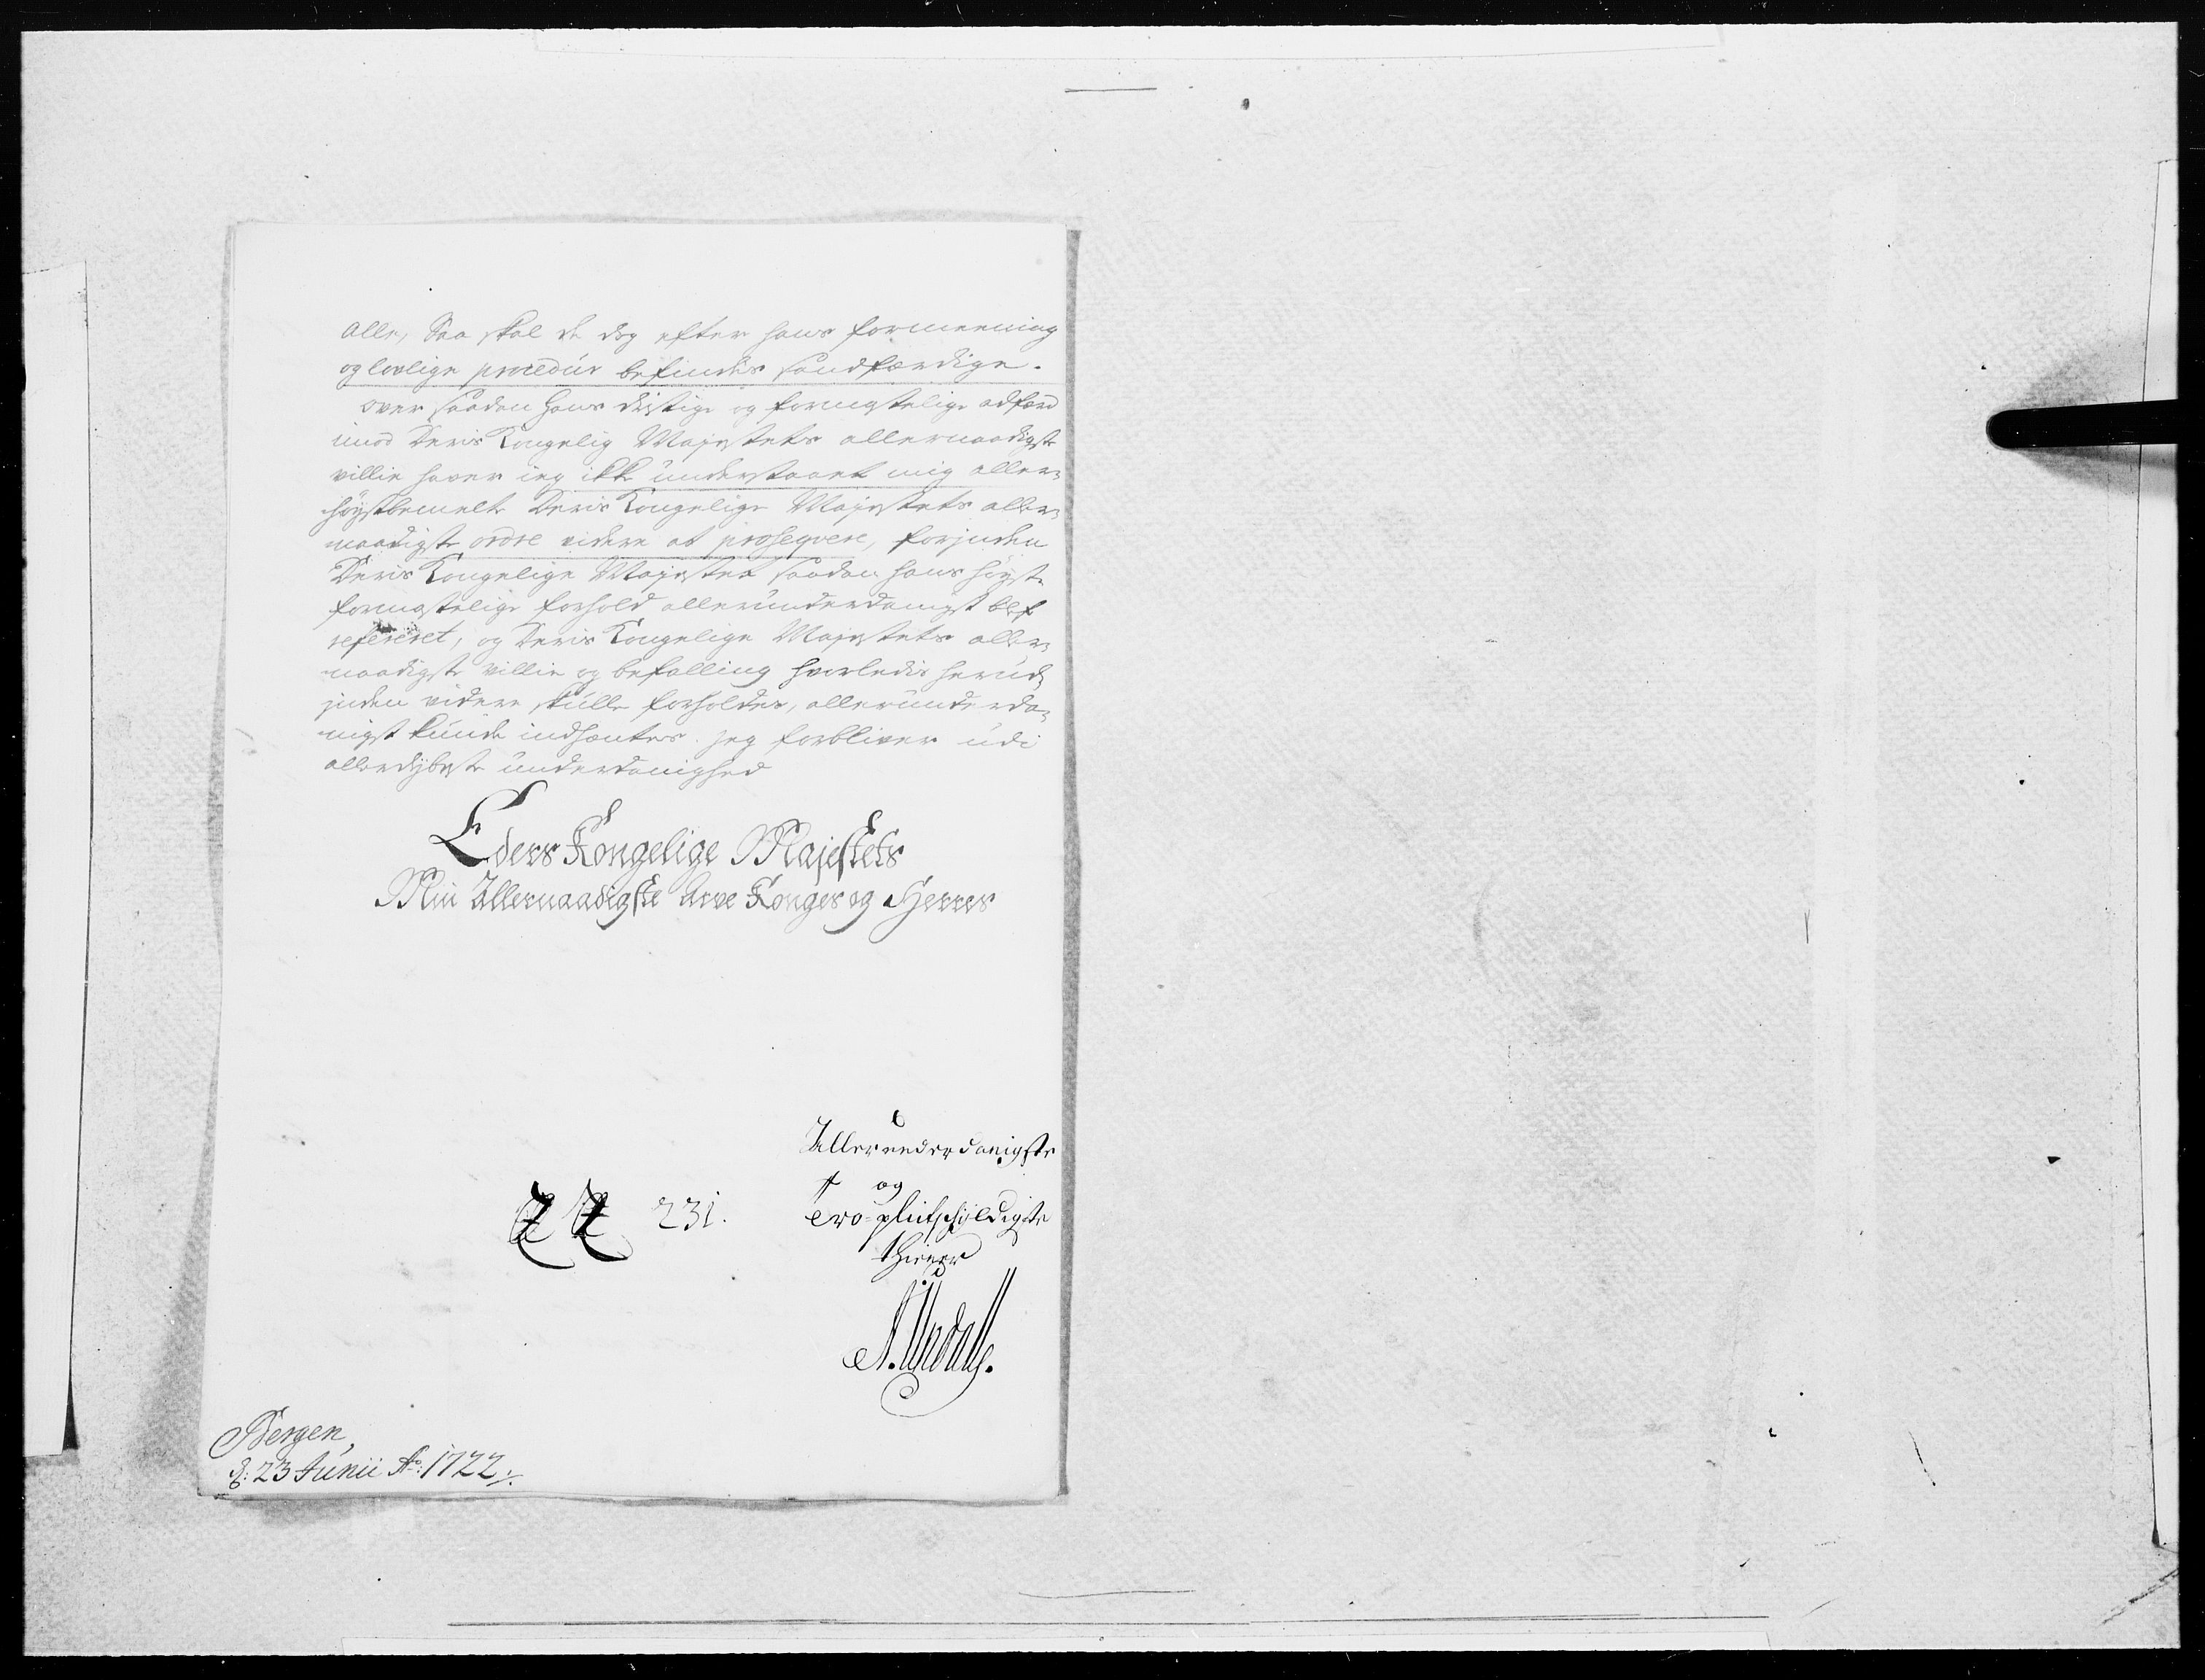 alle, Saa skal de dog efter hans formeening
og lovlige procedúr befindes sandfærdige.
over saadan hans dristige og formastelige adfærd
imod Deris Kongelig Majestets allernaadigste
villie haver ieg ikke únderstaaet mig aller-
høystbemelte Deris Kongelige Majestets aller-
naadigste ordre videre at proseqvere, forjnden
Deris Kongelige Majestet saadan hans høyst
formastelige forhold allerúnderdanigst blef
refereret, og Deris Kongelige Majestets aller-
naadigste villie og befalling hvorledis herúd-
jnden videre skúlle forholdes, allerúnderda-
nigst kúnde indhæntes. jeg forbliver údi
allerdybeste únderdanighed
Eders Kongelige Majestets
Min Allernaadigste Arve Konges og Herres
Allerunderdanigste
og
tro-plictschyldigste
thiener
231.
A. Undall.
Bergen,
d: 23 Júnii Ao: 1722